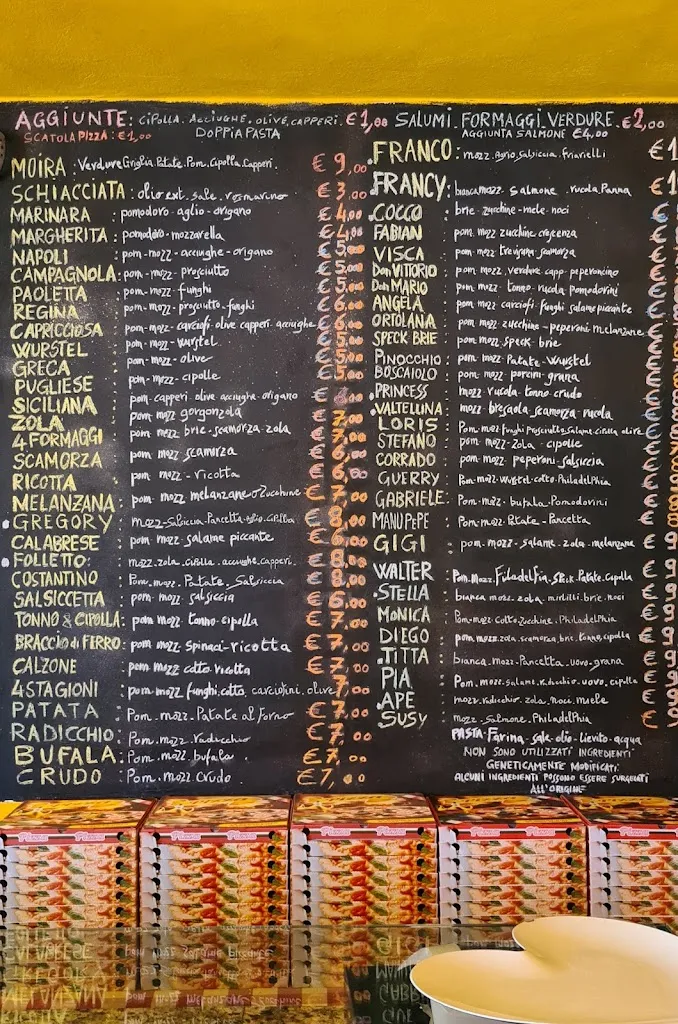 AGGIUNTE: CIPOLLA. ACCIUGHE. OLIVE, CAPPERI. €1,00
SCATOLA PIZZA: €1,00 DOPPIA PASTA
MOIRA : Verdure Griglia. Patate. Pom. Cipolla. Capperi. €9,00
SCHIACCIATA : olio ext. sale. rosmarino €3,00
MARINARA : pomodoro - aglio - origano €4,00
MARGHERITA : pomodoro - mozzarella €4,00
NAPOLI : pom - mozz - acciughe - origano €5,00
CAMPAGNOLA : pom - mozz - prosciutto €5,00
PAOLETTA : pom - mozz - funghi €5,00
REGINA : pom - mozz - prosciutto - funghi €6,00
CAPRICCIOSA : pom - mozz - carciofi - olive capperi - acciughe €6,00
WURSTEL : pom - mozz - wurstel €5,00
GRECA : pom - mozz - olive €5,00
PUGLIESE : pom - mozz - cipolle €5,00
SICILIANA : pom - capperi - olive acciughe - origano
ZOLA : pom mozz gorgonzola
4 FORMAGGI : pom mozz - brie - scamorza - zola €7,00
SCAMORZA : pom mozz scamorza €6,00
RICOTTA : pom mozz - ricotta €6,00
MELANZANA : pom mozz melanzane o Zucchine €7,00
GREGORY : mozz - Salsiccia - Pancetta - aglio - Cipolla €8,00
CALABRESE : pom - mozz - salame piccante €6,00
FOLLETTO : mozz. zola. cipolla. acciughe. capperi. €8,00
COSTANTINO : Pom. mozz - Patate. Salsiccia €8,00
SALSICCETTA : pom - mozz - salsiccia €6,00
TONNO & CIPOLLA : pom. mozz. tonno. cipolla €7,00
BRACCIO di FERRO : pom mozz spinaci - ricotta €7,00
CALZONE : pom mozz cotto ricotta €7,00
4 STAGIONI : pom - mozz funghi, cotto, carciofini, olive 7,00
PATATA : Pom. mozz - Patate al Forno €7,00
RADICCHIO : Pom - mozz - radicchio €7,00
BUFALA : Pom. mozz bufala. €7,00
CRUDO : Pom. mozz Crudo. €7,00
SALUMI. FORMAGGI. VERDURE. €2,00
AGGIUNTA SALMONE €4,00
.FRANCO : mozz. Aglio, Salsiccia - Friarielli €1
.FRANCY : bianca mozz. Salmone. rucola. Panna €1
.COCCO : brie - zucchine - mele - noci €
FABIAN : pom mozz zucchine crescenza €
VISCA : pom - mozz trevigiana scamorza €
Don VITTORIO : pom mozz. verdure capp. peperoncino €
Don MARIO : pom mozz - tonno - rucola - pomodorini €
ANGELA : pom mozz carciofi - funghi salame piccante €
ORTOLANA : pom mozz - zucchine - peperoni melanzane €
SPECK BRIE : pom mozz. speck - brie €
PINOCCHIO : pom mozz - Patate - Wurstel €
BOSCAIOLO : pom - mozz - porcini - grana €
.PRINCESS : mozz - rucola - tonno crudo €
.VALTELLINA : mozz - bresaola - scamorza - rucola €
LORIS : Pom. mozz. Funghi Prosciutto, Salame. Cipolla. olive €
STEFANO : pom - mozz - zola - cipolle €
CORRADO : pom mozz - peperoni - salsiccia €
GUERRY : Pom - mozz - wurstel - cotto - Philadelphia €
GABRIELE : Pom - mozz - bufala - Pomodorini €
MANU PePE : Pom - mozz - Patate - Pancetta €
GIGI : pom - mozz - salame. zola - melanzane € 9
WALTER : Pom. Mozz. Filadelfia. Speck. Patate. Cipolla € 9
.STELLA : bianca mozz. zola. mirtilli. brie. noci € 9
MONICA : Pom - mozz - cotto - zucchine. Philadelphia € 9
DIEGO : pom mozz. zola. scamorza, brie, tonno, cipolla € 9
.TITTA : bianca. mozz - Pancetta - uovo - grana € 9
PIA : Pom. mozz. salame. radicchio - uovo, cipolla € 9
.APE : mozz - radicchio - zola, noci, miele € 9
SUSY : mozz - Salmone. Philadelphia. € 9
PASTA: Farina - sale - olio - lievito - acqua
NON SONO UTILIZZATI INGREDIENTI
GENETICAMENTE MODIFICATI.
ALCUNI INGREDIENTI POSSONO ESSERE SURGELATI
ALL'ORIGINE